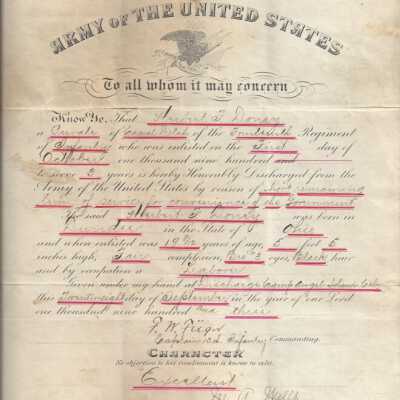 ARMY OF THE UNITED STATES
To all whom it may concern
Know Ye, That Herbert
a Private of of the Regiment
of Infantry who was enlisted on the First day of
October one thousand nine hundred and
to serve 3 years is hereby Honorably Discharged from the
Army of the United States by reason of remaining
of service for convenience of the Government
said Herbert was born in
in the State of Ohio
and when enlisted was 19 years of age, 5 feet 5
inches high, Fair complexion, eyes, Black hair
and by occupation a Laborer
Given under my hand at Camp Angel Island Cal
this day of September in the year of our Lord
one thousand nine hundred and three
F. W.
Captain Infantry Commanding.
CHARACTER
No objection to his reenlistment is known to exist.
Excellent